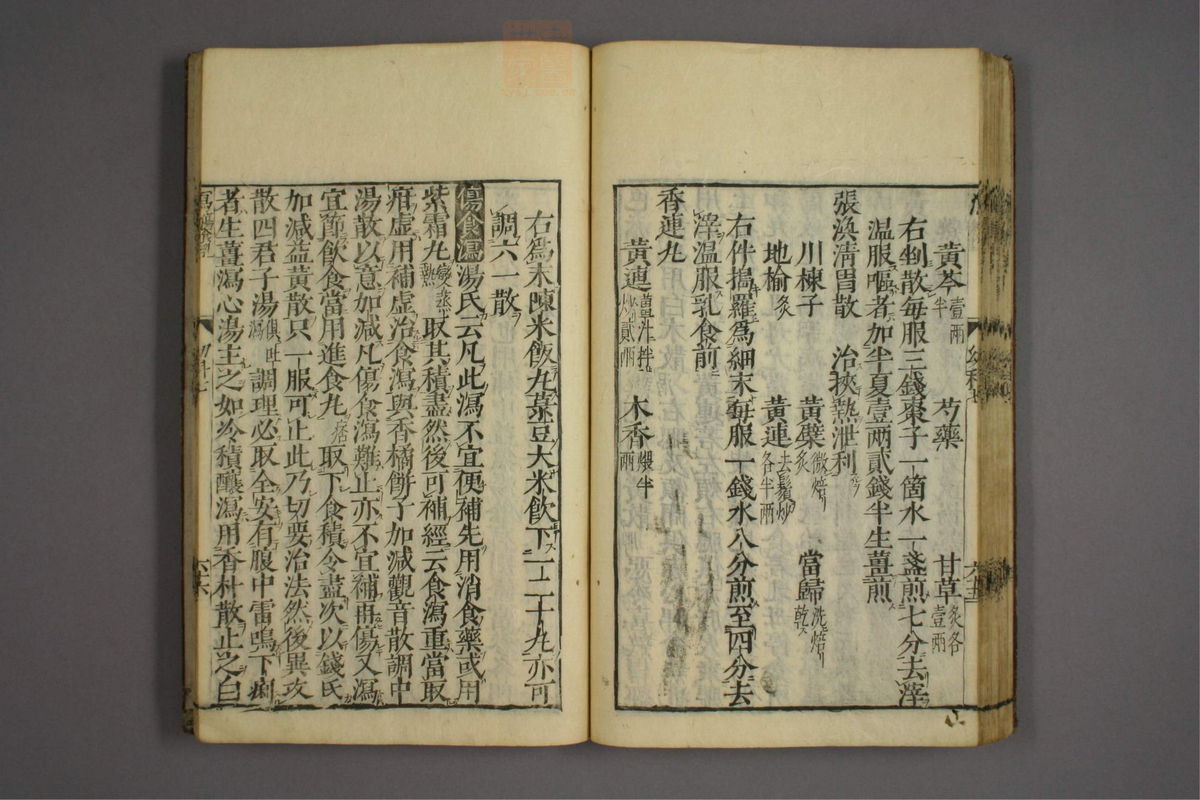 黃芩壹兩半 芍藥 甘草炙各壹兩
右剉散每服三錢棗子一箇水一盞煎七分去滓
溫服嘔者加半夏壹两貳錢半生薑煎
張渙淸胃散 治挾熱泄利
川楝子 黃蘗微焙炙 當歸洗焙乾
地榆炙 黃連去鬚炒各半兩
右件搗羅爲細末每服一錢水八分煎至四分去
滓溫服乳食前
香連丸
黃連薑汁拌炒貳兩 木香煨半兩
右爲末陳米飯丸菉豆大米飮下一二十丸亦可
調六一散
傷食瀉湯氏云凡此瀉不宜便補先用消食藥或用
紫霜丸變蒸熱取其積盡然後可補經云食瀉重當取
疳虛用補虛治食瀉與香橘餠子加減觀音散調中
湯散以意加減凡傷食瀉難止亦不宜補再傷又瀉
宜節飮食當用進食丸痞取下食積令盡次以錢氏
加減益黃散只一服可止此乃切要治法然後異攻
散四君子湯俱吐瀉調理必取全安有腹中雷鳴下痢
者生薑瀉心湯主之如冷積釀瀉用香朴散止之白
六六